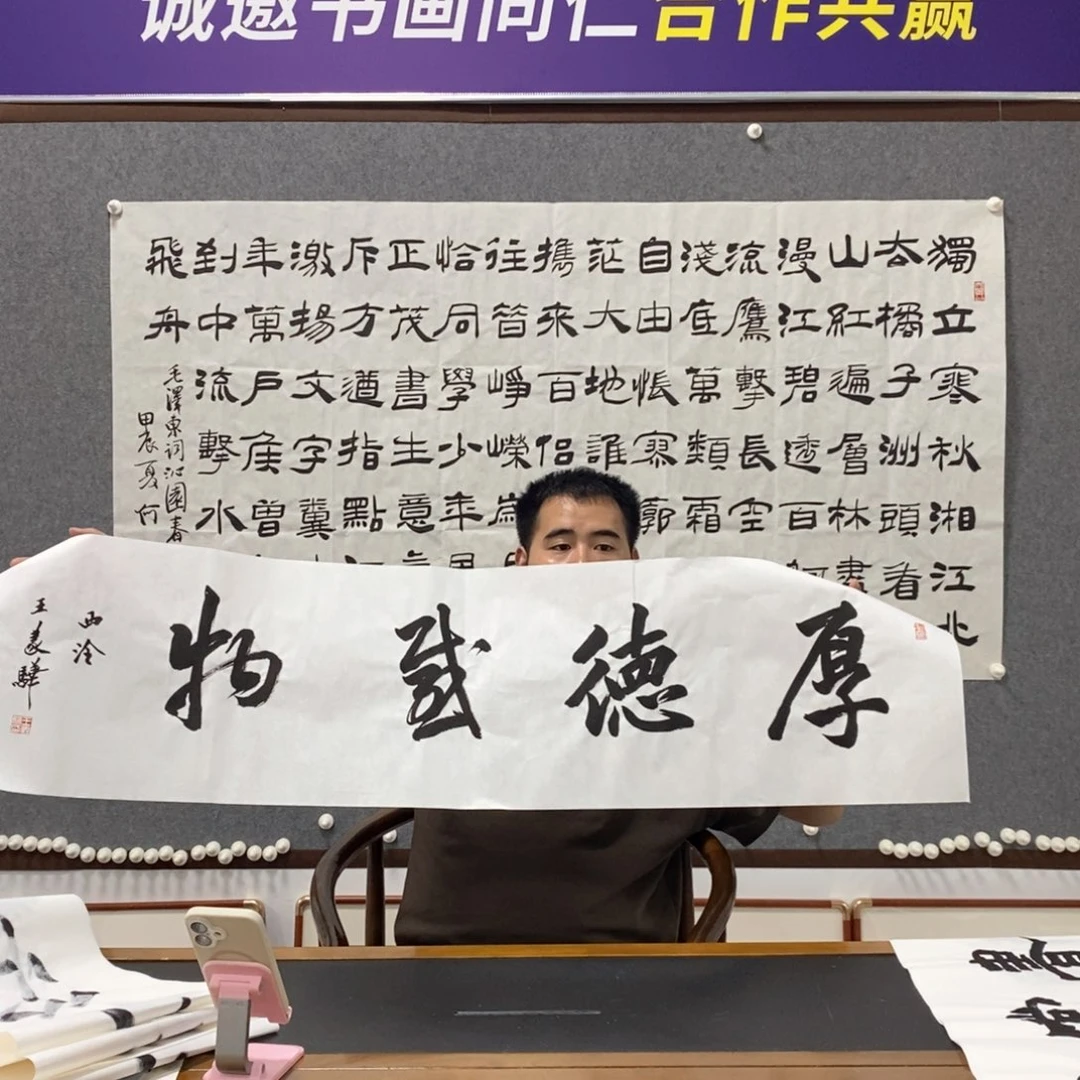 诚邀书画同仁合作共赢
獨立寒秋湘江北
去橘子洲頭看
山紅遍層林盡
漫江碧透百舸
流鷹擊長空
淺底萬類霜
自由悵寥廓
茫大地誰
攜來百侶
往昔崢嶸歲
恰同學少年風
正茂書生意氣
斥方遒指點江
激揚文字糞土
年萬戶侯曾
到中流擊水
飛舟
毛澤東詞沁園春
甲辰夏何
厚德載物
西泠
王美驊